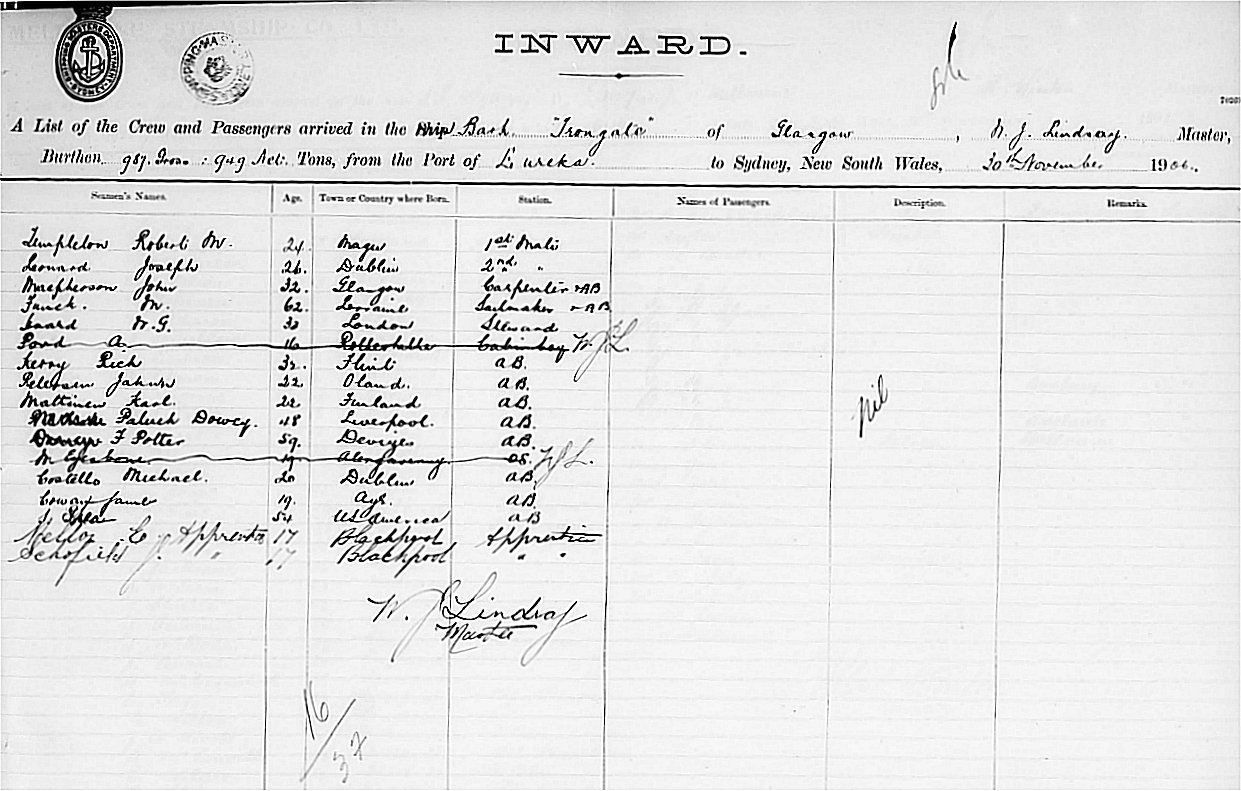 SHIPPING MASTERS DEPARTMENT SYDNEY
SHIPPING MASTER SYDNEY
INWARD.
A List of the Crew and Passengers arrived in the Ship Bark "Trongate" of Glasgow, W. J. Lindsay. Master,
Burthen 987. Gross: 949 Net. Tons, from the Port of Eureka. to Sydney, New South Wales, 30th November 1906.
Seamen's Names. Age. Town or Country where Born. Station. Names of Passengers. Description. Remarks.
Templeton Robert M. 24. 1st Mate
Leonard Joseph 26. Dublin 2nd "
Macpherson John 32. Glasgow Carpenter & AB
Funck. M. 62. Lorraine Sailmaker & AB
W. G. 30 London Steward
Pond A. 16 Cabinboy W. J. L.
Kerry Rich 32. Flint AB.
Petersen 22 Oland. AB.
Mattinen Karl. 22 Finland AB.
Patrick Dowey. 48 Liverpool. AB.
F Potter 59. Devizes AB.
M 19 Abergavenny OS. W J L.
Costello Michael. 20 Dublin AB.
Cowan James 19. Ayr. AB.
J. Shea 54 US America AB
Mellor C. Apprentice 17 Blackpool Apprentice
Schofield J. " 17 Blackpool " "
Nil
W. J. Lindsay
Master
16/37